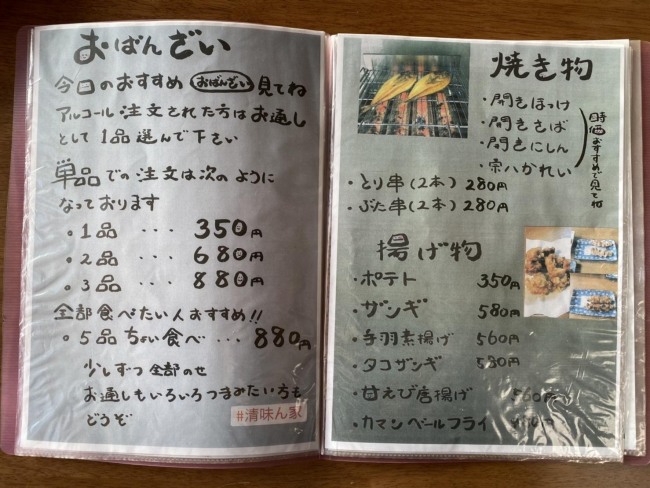 おばんざい
今日のおすすめ おばんざい 見てね
アルコール注文された方はお通し
として1品選んで下さい
単品での注文は次のように
なっております
・1品 ... 350円
・2品 ... 680円
・3品 ... 880円
全部食べたい人おすすめ!!
・5品ちょい食べ ... 880円
少しずつ全部のせ
お通しもいろいろつまみたい方も
どうぞ
#清味ん家
焼き物
・開きほっけ
・開きさば
・開きにしん
・宗八かれい
時価おすすめで見てね
・とり串(2本) 280円
・ぶた串(2本) 280円
揚げ物
・ポテト 350円
・ザンギ 580円
・手羽素揚げ 560円
・タコザンギ 580円
・甘えび唐揚げ 560円
・カマンベールフライ